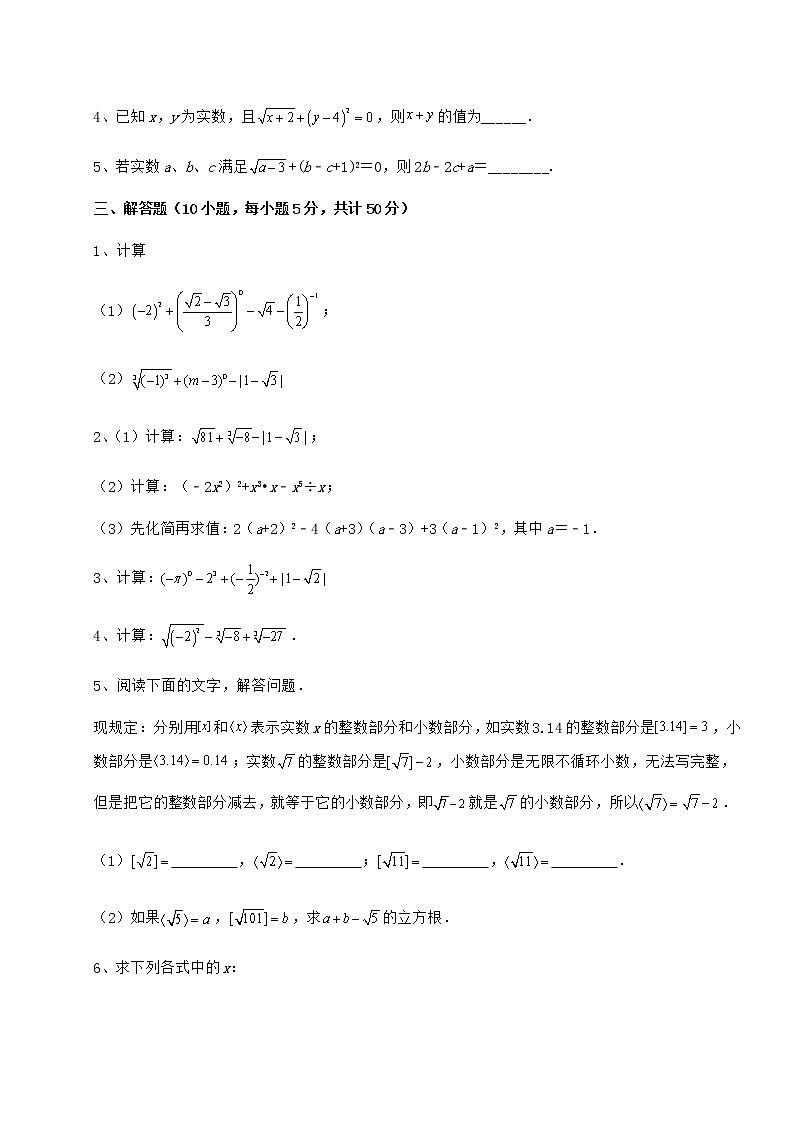 4、已知 x，y 为实数，且√(x+2)+(y−4)²=0，则 x+y 的值为______．
5、若实数 a、b、c 满足√(a−3)+(b﹣c+1)²＝0，则 2b﹣2c+a＝________．
三、解答题（10 小题，每小题 5 分，共计 50 分）
1、计算
（1）(−2)²+((√2−√3)/3)⁰−√4−(1/2)⁻¹；
（2）∛((−1)³)+(m−3)⁰−|1−√3|
2、（1）计算：√81+∛−8−|1−√3|；
（2）计算：（﹣2x²）²+x³•x﹣x⁵÷x；
（3）先化简再求值：2（a+2）²﹣4（a+3）（a﹣3）+3（a﹣1）²，其中 a＝﹣1．
3、计算：(−π)⁰−2³+(−1/2)⁻²+|1−√2|
4、计算：√((−2)²)−∛−8+∛−27．
5、阅读下面的文字，解答问题．
现规定：分别用[x]和⟨x⟩表示实数 x 的整数部分和小数部分，如实数 3.14 的整数部分是[3.14]=3，小
数部分是⟨3.14⟩=0.14；实数√7的整数部分是[√7]−2，小数部分是无限不循环小数，无法写完整，
但是把它的整数部分减去，就等于它的小数部分，即√7−2就是√7的小数部分，所以⟨√7⟩=√7−2．
（1）[√2]=_________，⟨√2⟩=_________；[√11]=_________，⟨√11⟩=_________．
（2）如果⟨√5⟩=a，[√101]=b，求a+b−√5的立方根．
6、求下列各式中的 x：